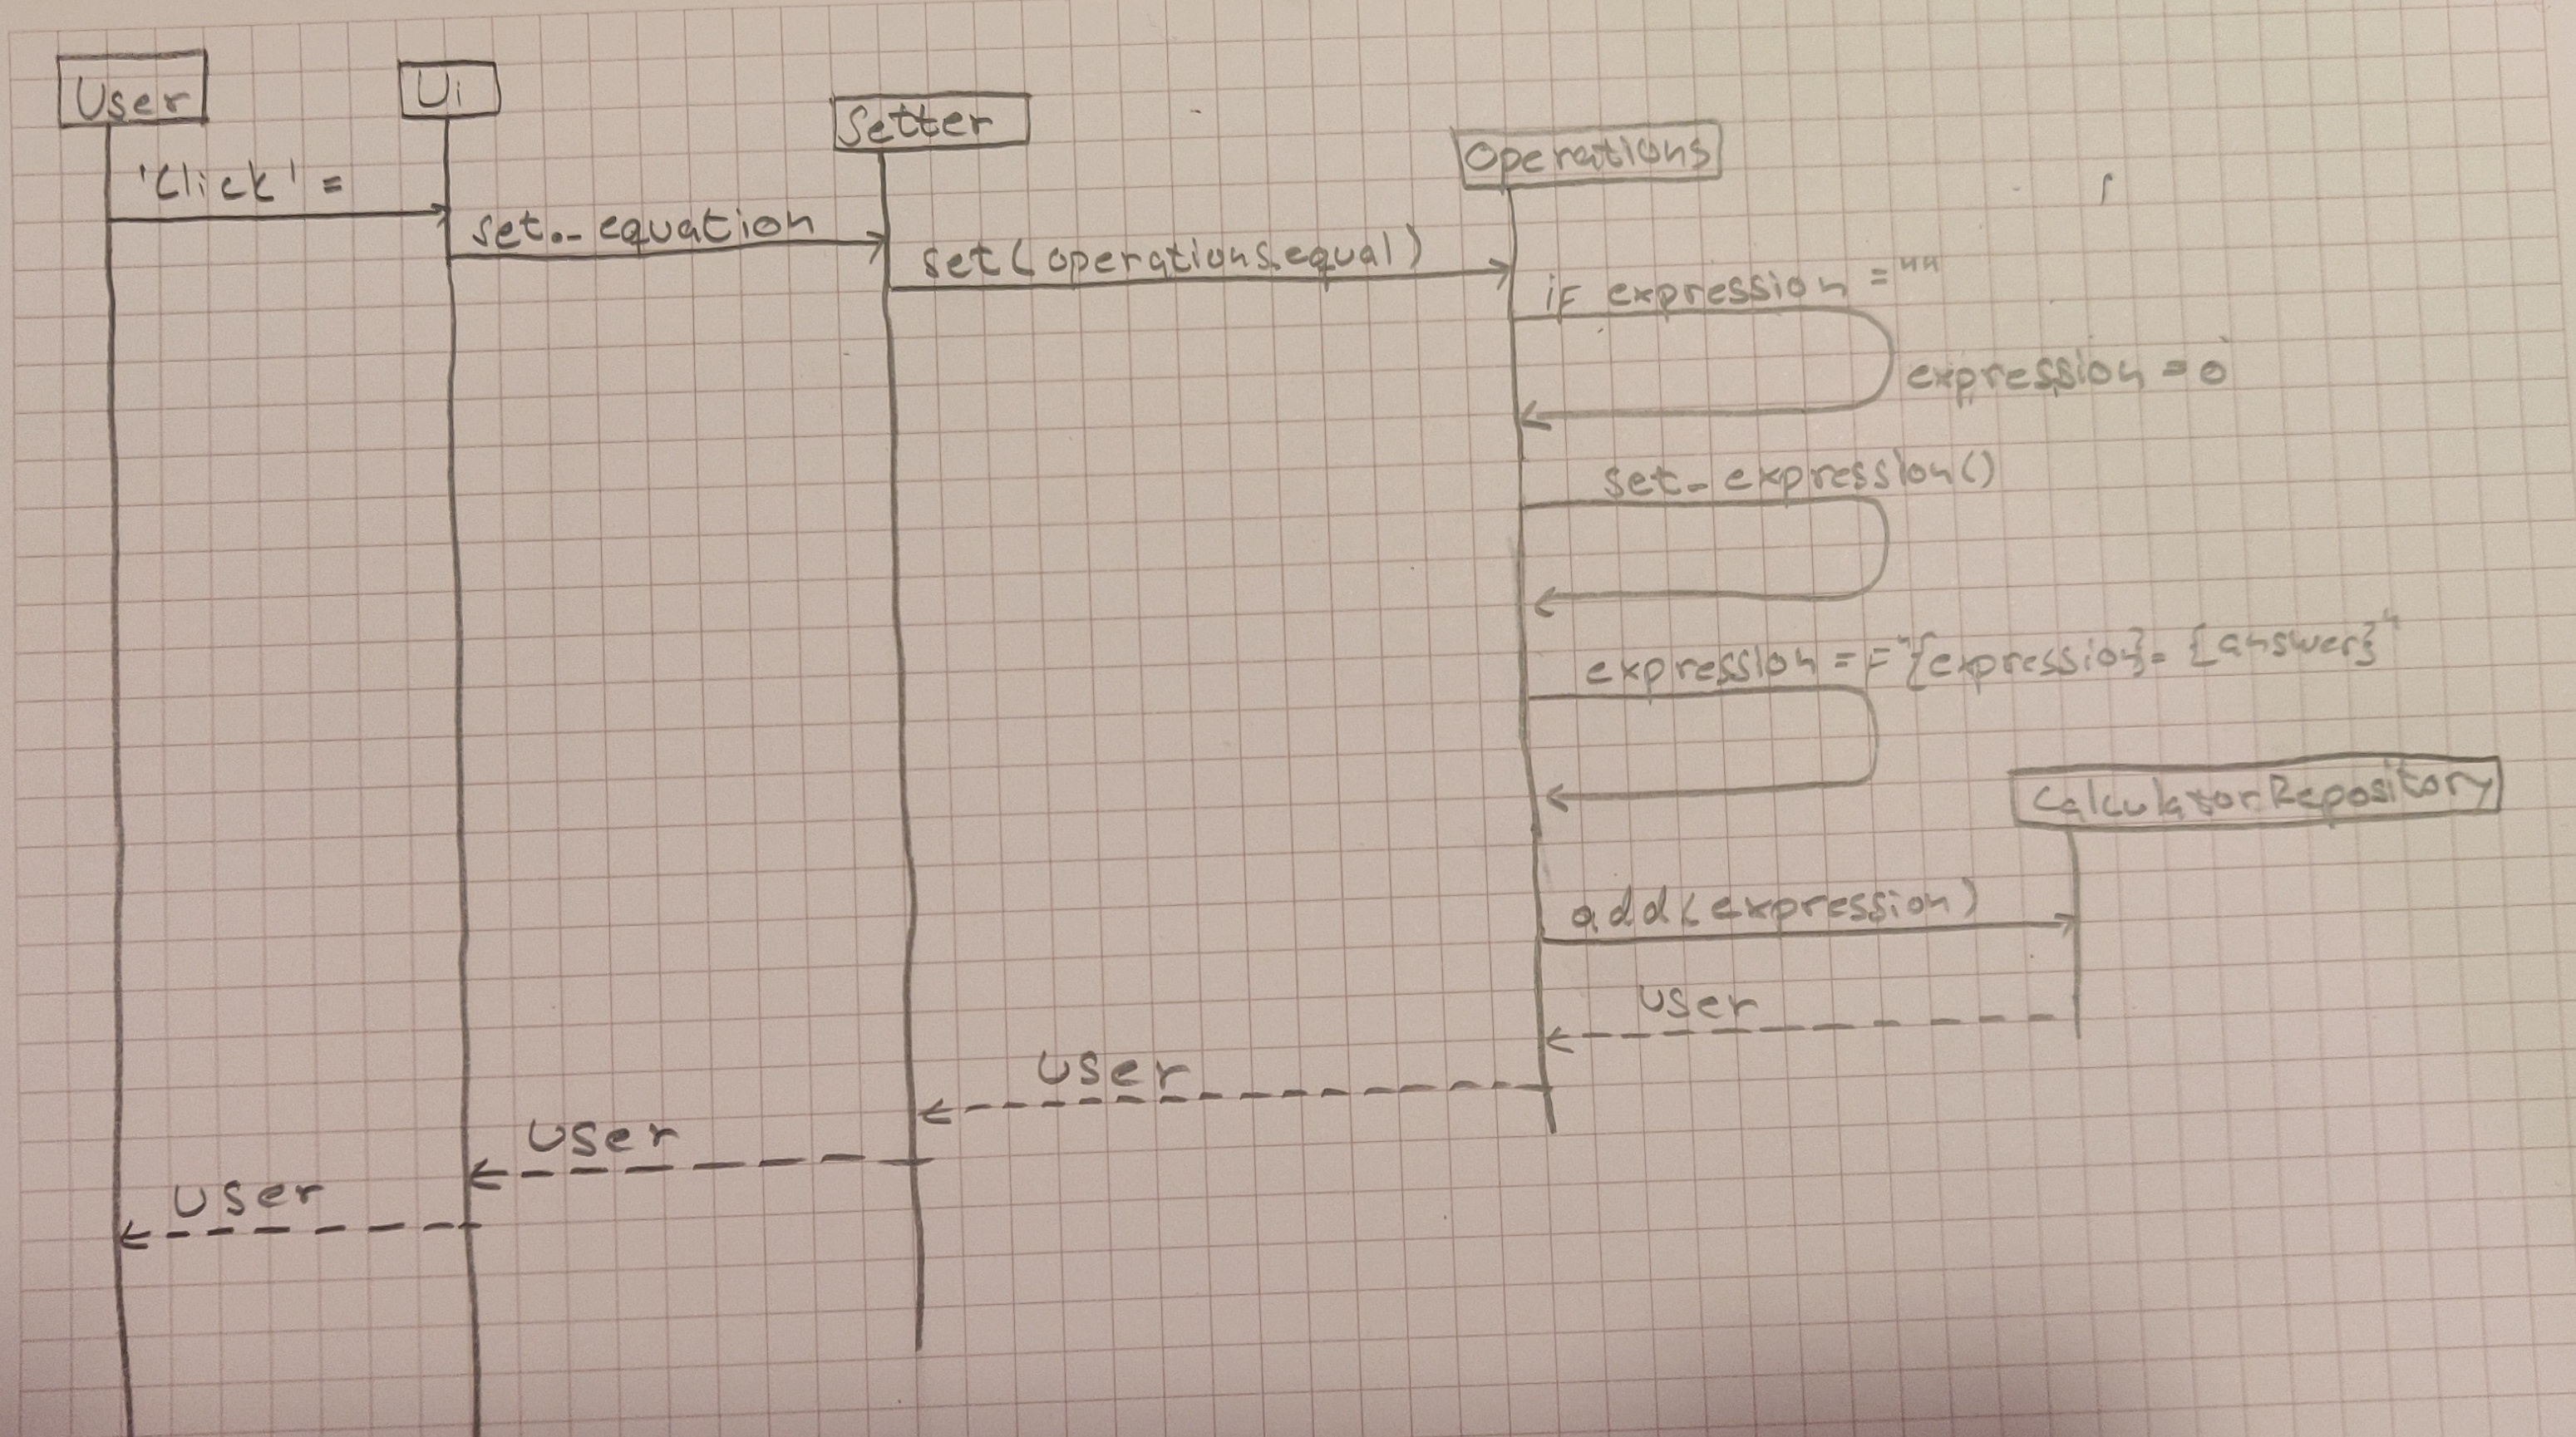 User
Ui
Setter
Operations
'Click' =
set._equation
set(operations.equal)
if expression = ""
expression = 0
set_expression()
expression = F"{expression} = {answer}"
CalculatorRepository
add(expression)
user
user
user
user